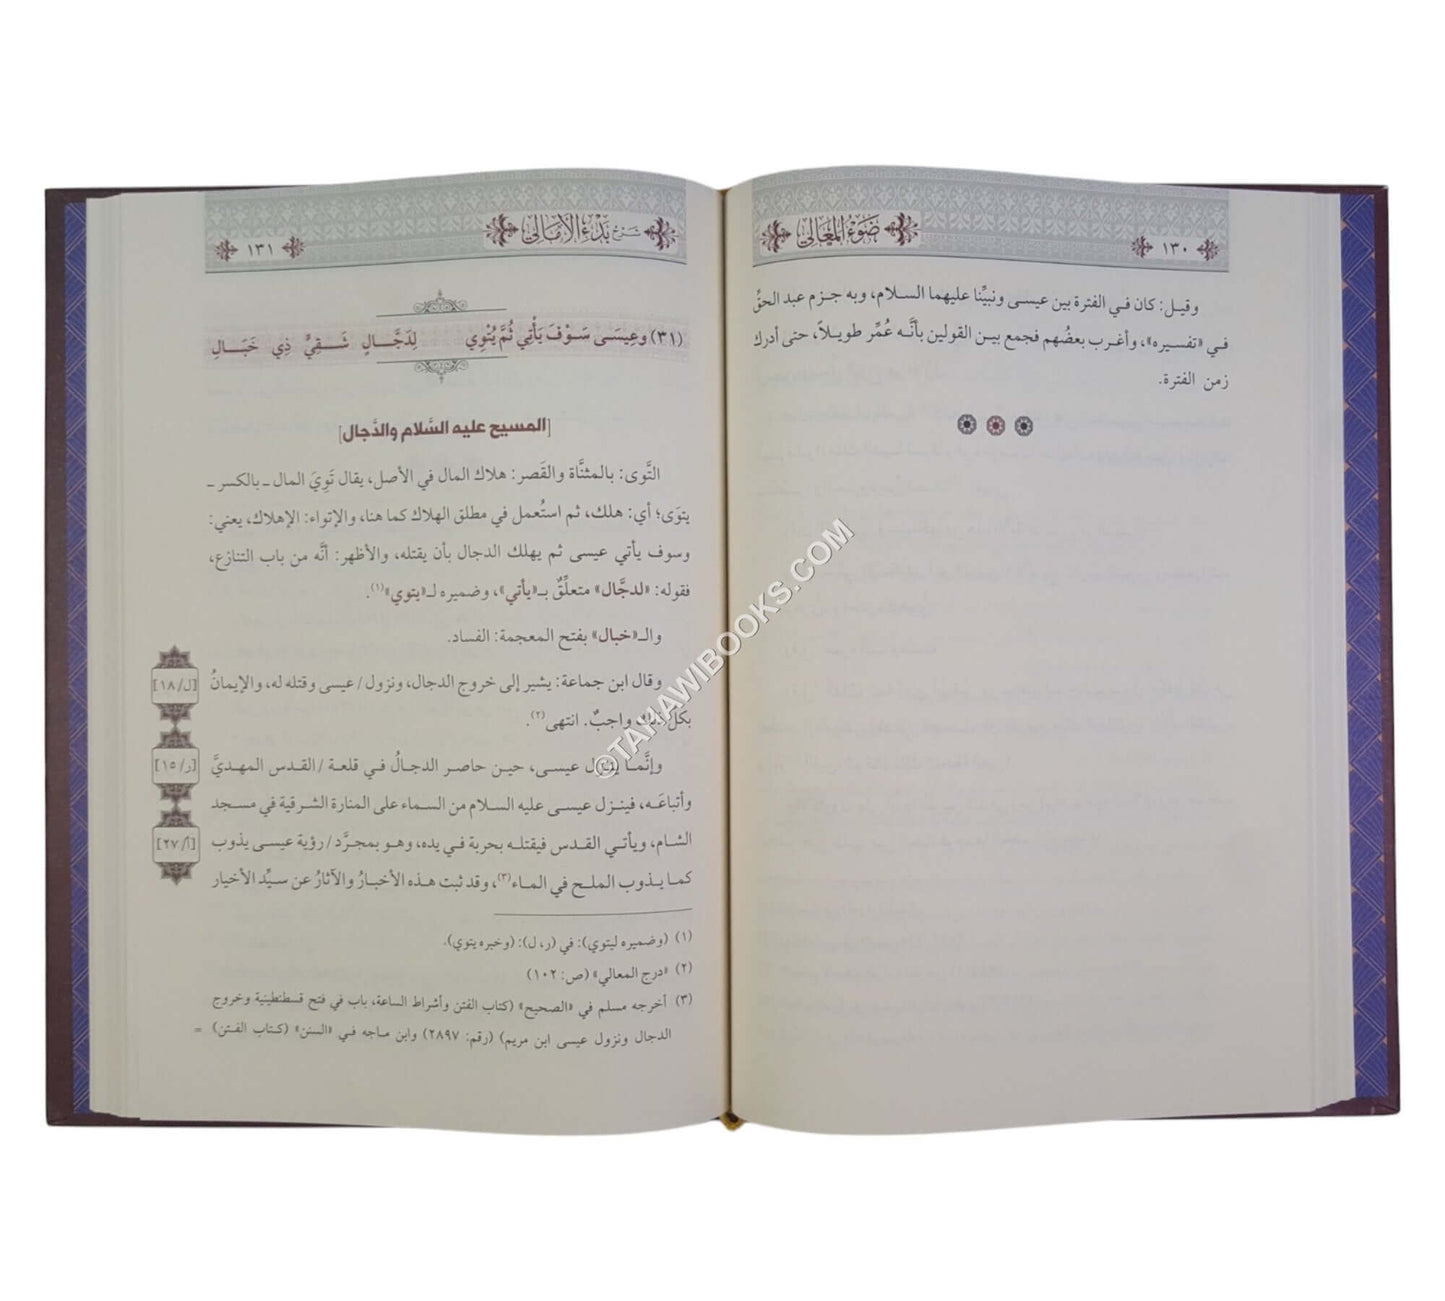 ضَوْءُ المَعَالِي
١٣٠
وقيل: كان في الفترة بين عيسى ونبيِّنا عليهما السلام، وبه جزم عبد الحقِّ
في «تفسيره»، وأغرب بعضُهم فجمع بين القولين بأنَّه عُمِّر طويلاً، حتى أدرك
زمن الفترة.
شَرْحُ بَدْءِ الأَمَالِي
١٣١
(٣١) وعِيسَى سَوْفَ يَأْتِي ثُمَّ يُتْوِي لِدَجَّالٍ شَقِيٍّ ذِي خَبَالِ
[المسيح عليه السَّلام والدَّجال]
التَّوى: بالمثنَّاة والقَصر: هلاك المال في الأصل، يقال تَوِيَ المال ـ بالكسر ـ
يتوَى؛ أي: هلك، ثم استُعمل في مطلق الهلاك كما هنا، والإتواء: الإهلاك، يعني:
وسوف يأتي عيسى ثم يهلك الدجال بأن يقتله، والأظهر: أنَّه من باب التنازُع،
فقوله: «لدجَّال» متعلِّقٌ بـ«يأتي»، وضميره لـ«يتوي»(١).
والـ«خبال» بفتح المعجمة: الفساد.
وقال ابن جماعة: يشير إلى خروج الدجال، ونزول/ عيسى وقتله له، والإيمانُ
[ل/١٨]
بكل ذلك واجبٌ. انتهى(٢).
وإنَّما ينزل عيسى، حين حاصر الدجالُ في قلعة/ القدس المهديَّ
[ر/١٥]
وأتباعَه، فينزل عيسى عليه السلام من السماء على المنارة الشرقية في مسجد
الشام، ويأتي القدس فيقتله بحربة في يده، وهو بمجرَّد/ رؤية عيسى يذوب
[أ/٢٧]
كما يذوب الملح في الماء(٣)، وقد ثبت هذه الأخبارُ والآثارُ عن سيِّد الأخيار
(١) (وضميره ليتوي): في (ر، ل): (وخبره يتوي).
(٢) «درج المعالي» (ص: ١٠٢)
(٣) أخرجه مسلم في «الصحيح» (كتاب الفتن وأشراط الساعة، باب في فتح قسطنطينية وخروج
الدجال ونزول عيسى ابن مريم) (رقم: ٢٨٩٧) وابن ماجه في «السنن» (كتاب الفتن) =
©TAHAWIBOOKS.COM